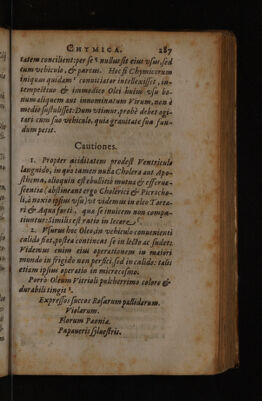 CHYMICA. 287
tatem concilient: per se nullus sit eius vsus, sed
cum vehiculo, & parum. Hoc si Chymicorum
iniquus quidam conuitiator intellexisset, in-
tempestiuo & immodico Olei huius vsu bo-
num aliquem aut innominatum Virum, non è
medio sustulisset: Dum vtimur, probè debet agi-
tari cum suo vehiculo, quia grauitate sua fun-
dum petit.
Cautiones.
1. Propter aciditatem prodest Ventriculo
languido, in quo tamen nulla Cholera aut Apo-
sthema, alioquin est ebullitio mutua & efferue-
scentia (abstineant ergo Cholerici & Picrocho-
li, à noxio ipsius vsu) vt videmus in oleo Tarta-
ri & Aqua forti, qua se inuicem non compa-
tiuntur: Similis est ratio in Iecore.
2. Vsurus hoc Oleo, in vehiculo conuenienti
calido fiat, postea contineat se in lecto ac sudet:
Videmus enim eius operationem in maiori
mundo in frigido non perfici, sed in calido: talis
etiam ipsius operatio in microcosmo.
Porrò Oleum Vitrioli pulcherrimo colore &
durabili tingit.
Expressos succos Rosarum pallidarum.
Violarum.
Florum Paeoniae.
Papaueris syluestris.